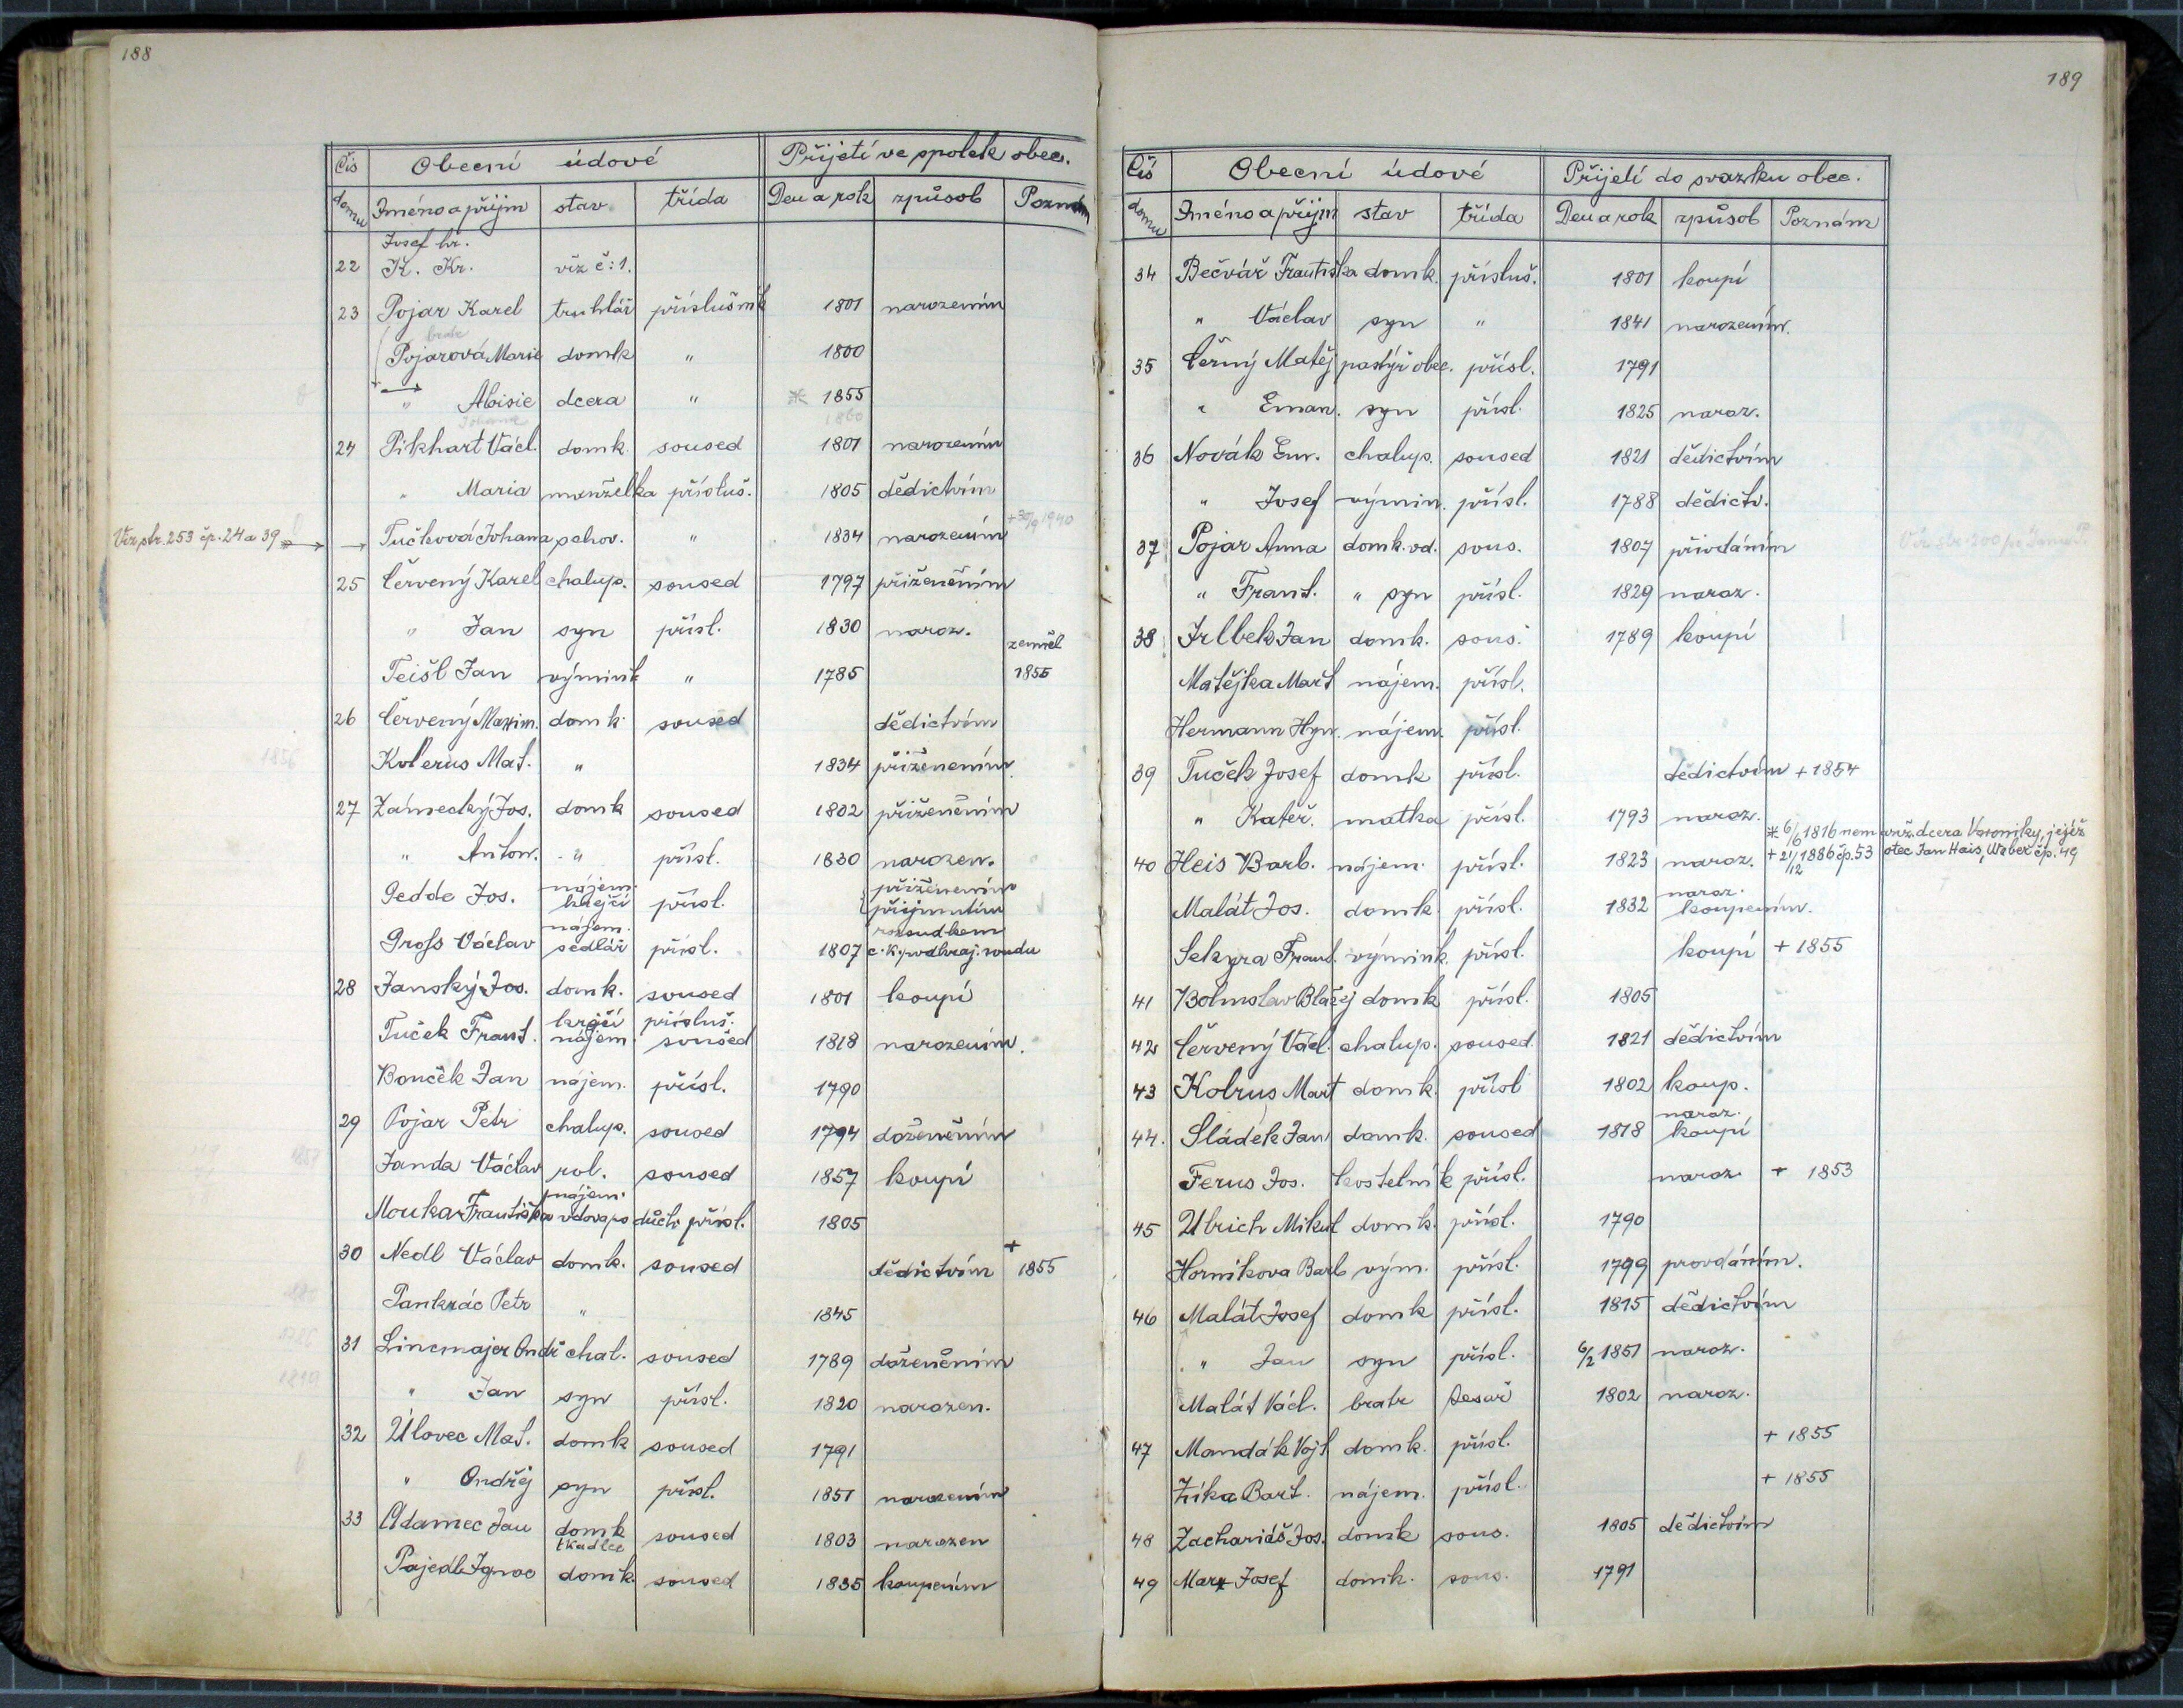 188
Čís Obecní údové Přijetí ve spolek obec.
domu Jméno a příjm stav třída Den a rok způsob Poznám
Josef hr.
22 K. Kr. viz č: 1.
23 Pojar Karel truhlář příslušník 1801 narozením
Pojarová Marie domk " 1800
" Aloisie dcera " * 1855
Johanna 1860
24 Pikhart Václ. domk. soused 1801 narozením
" Maria manželka přísluš. 1805 dědictvím
+30/9 1940
Viz str. 253 čp. 24 a 39 Tučková Johana schov. " 1834 narozením
25 Červený Karel chalup. soused 1797 přiženěním
" Jan syn přísl. 1830 naroz.
zemřel
Teišl Jan výmink " 1785 1855
26 Červený Maxim. domk. soused dědictvím
1856
Kolerus Mat. " 1834 přiženením
27 Zámecký Jos. domk soused 1802 přiženěním
" Anton. " přísl. 1830 narozen.
Pedde Jos. nájem. krejčí přísl. přiženením přijmutím
Gross Václav nájem. sedlář přísl. 1807 rozsudkem c. k. podkraj. soudu
28 Janský Jos. domk. soused 1801 koupí
krejčí přísluš.
Tuček Frant. nájem. soused 1818 narozením.
Bouček Jan nájem. přísl. 1790
29 Pojar Petr chalup. soused 1794 doženěním
Janda Václav rol. soused 1857 koupí
nájem.
Mouka Františka vdova po důch. přísl. 1805
30 Nedl Václav domk. soused dědictvím + 1855
Pankrác Petr " 1845
31 Lincmajer Ondř chal. soused 1789 doženěním
" Jan syn přísl. 1820 narozen.
32 Úlovec Mat. domk soused 1791
" Ondřej syn přísl. 1851 narozením
33 Adamec Jan domk tkadlec soused 1803 narozen
Pajedl Ignac domk. soused 1835 koupením
189
Čís Obecní údové Přijetí do svazku obec.
domu Jméno a příjm stav třída Den a rok způsob Poznám
34 Bečvář Františka domk. přísluš. 1801 koupí
" Václav syn " 1841 narozením.
35 Černý Matěj pastýř obec. přísl. 1791
" Eman. syn přísl. 1825 naroz.
36 Novák Em. chalup. soused 1821 dědictvím
" Josef výmin. přísl. 1788 dědictv.
37 Pojar Anna domk. vd. sous. 1807 přivdáním
" Frant. " syn přísl. 1829 naroz.
38 Irlbek Jan domk. sous. 1789 koupí
Matějka Mart nájem. přísl.
Hermann Hyn. nájem. přísl.
39 Tuček Josef domk přísl. dědictvím + 1854
" Kateř. matka přísl. 1793 naroz.
* 6/6 1816 nemanž. dcera Veroniky, jejíž
40 Heis Barb. nájem. přísl. 1823 naroz. + 21/12 1886 čp. 53 otec Jan Hais, Weber čp. 49
Malát Jos. domk. přísl. 1832 naroz. koupením.
Sekyra Frant. výminík. přísl. koupí + 1855
41 Bohuslav Blažej domk přísl. 1805
42 Červený Václ. chalup. soused 1821 dědictvím
43 Kolrus Mart domk. přísl 1802 koup.
naroz.
44. Sládek Jan domk. soused 1818 koupí
Ferus Jos. kostelník přísl. naroz. + 1853
45 Ulrich Mikul domk. přísl. 1790
Horníkova Barb vým. přísl. 1799 provdáním.
46 Malát Josef domk přísl. 1815 dědictvím
" Jan syn přísl. 6/2 1851 naroz.
Malát Václ. bratr tesař 1802 naroz.
47 Mandák Vojt domk. přísl. + 1855
Zíka Bart. nájem. přísl. + 1855
48 Zachariáš Jos. domk sous. 1805 dědictvím
49 Marx Josef domk. sous. 1791